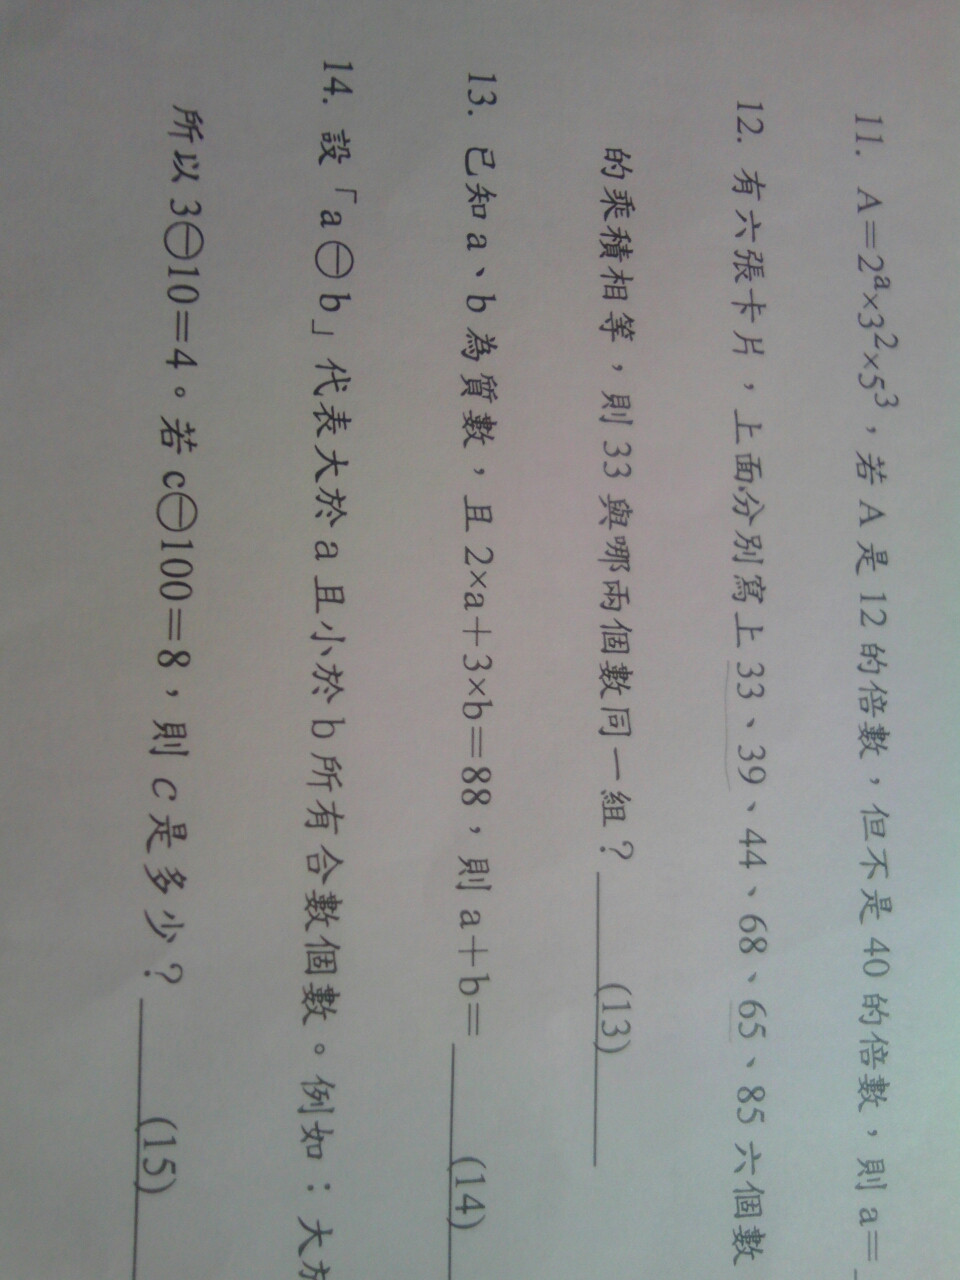 11. A=2ᵃ×3²×5³，若 A 是 12 的倍數，但不是 40 的倍數，則 a=
12. 有六張卡片，上面分別寫上 33、39、44、68、65、85 六個數
的乘積相等，則 33 與哪兩個數同一組？ (13)
13. 已知 a、b 為質數，且 2×a+3×b=88，則 a+b= (14)
14. 設「a⊖b」代表大於 a 且小於 b 所有合數個數。例如：大於
所以 3⊖10=4。若 c⊖100=8，則 c 是多少？ (15)